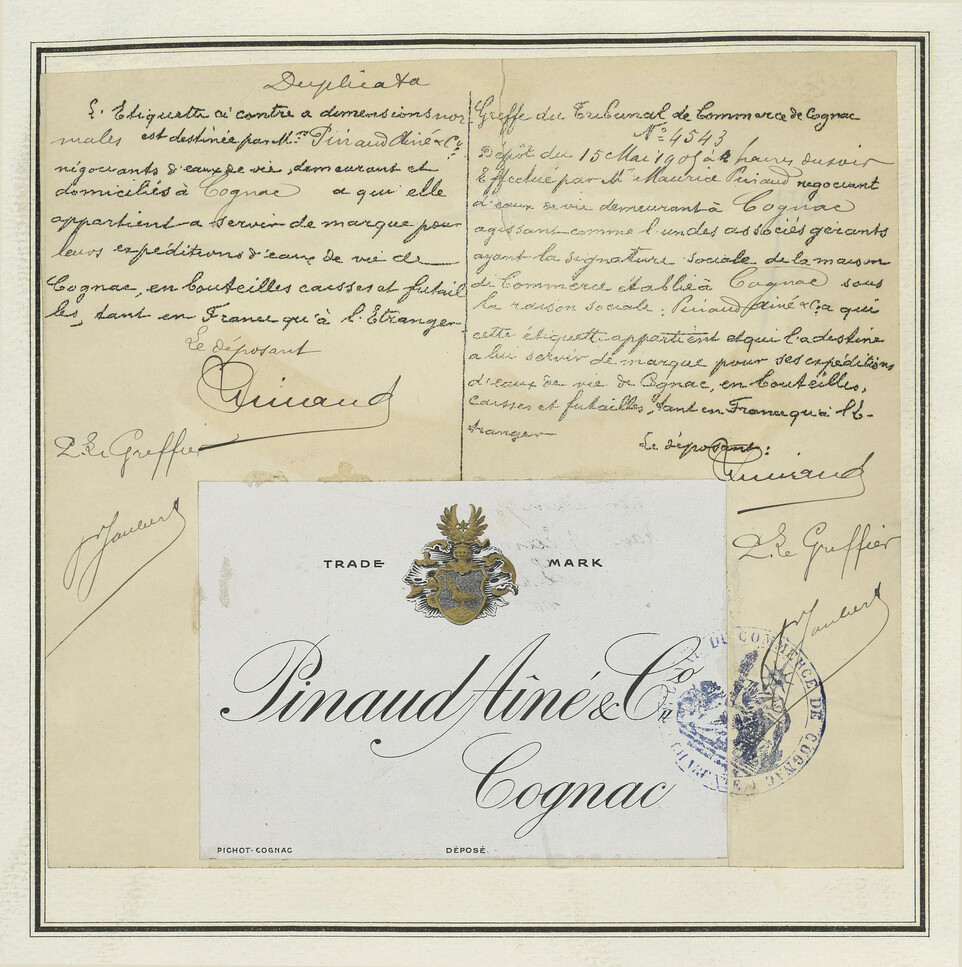 Duplicata
L'Etiquette ci contre a dimensions nor
males est destinée par Mrs Pinaud Aîné & Co
négociants d'eaux de vie, demeurant et
domiciliés à Cognac a qui elle
appartient a servir de marque pour
leurs expéditions d'eaux de vie de
Cognac, en bouteilles caisses et futail
les, tant en France qu'à l'Etranger
Le déposant
Pinaud
P. Le Greffier
Joubert
Greffe du Tribunal de Commerce de Cognac
No 4543
Dépôt du 15 Mai 1905 à heures du soir
Effectué par Mr Maurice Pinaud negociant
d'eaux de vie demeurant à Cognac
agissant comme l'un des associés gérants
ayant la signature sociale de la maison
de Commerce établie à Cognac sous
la raison sociale: Pinaud Aîné & Co a qui
cette étiquette appartient et qui l'a destine
a lui servir de marque pour ses expéditions
d'eaux de vie de Cognac, en bouteilles,
caisses et futailles, tant en France qu'à l'E-
tranger
Le déposant:
Pinaud
P. Le Greffier
Joubert
TRADE MARK
Pinaud Aîné & Co
Cognac
PICHOT-COGNAC DÉPOSÉ
DE COMMERCE DE COGNAC